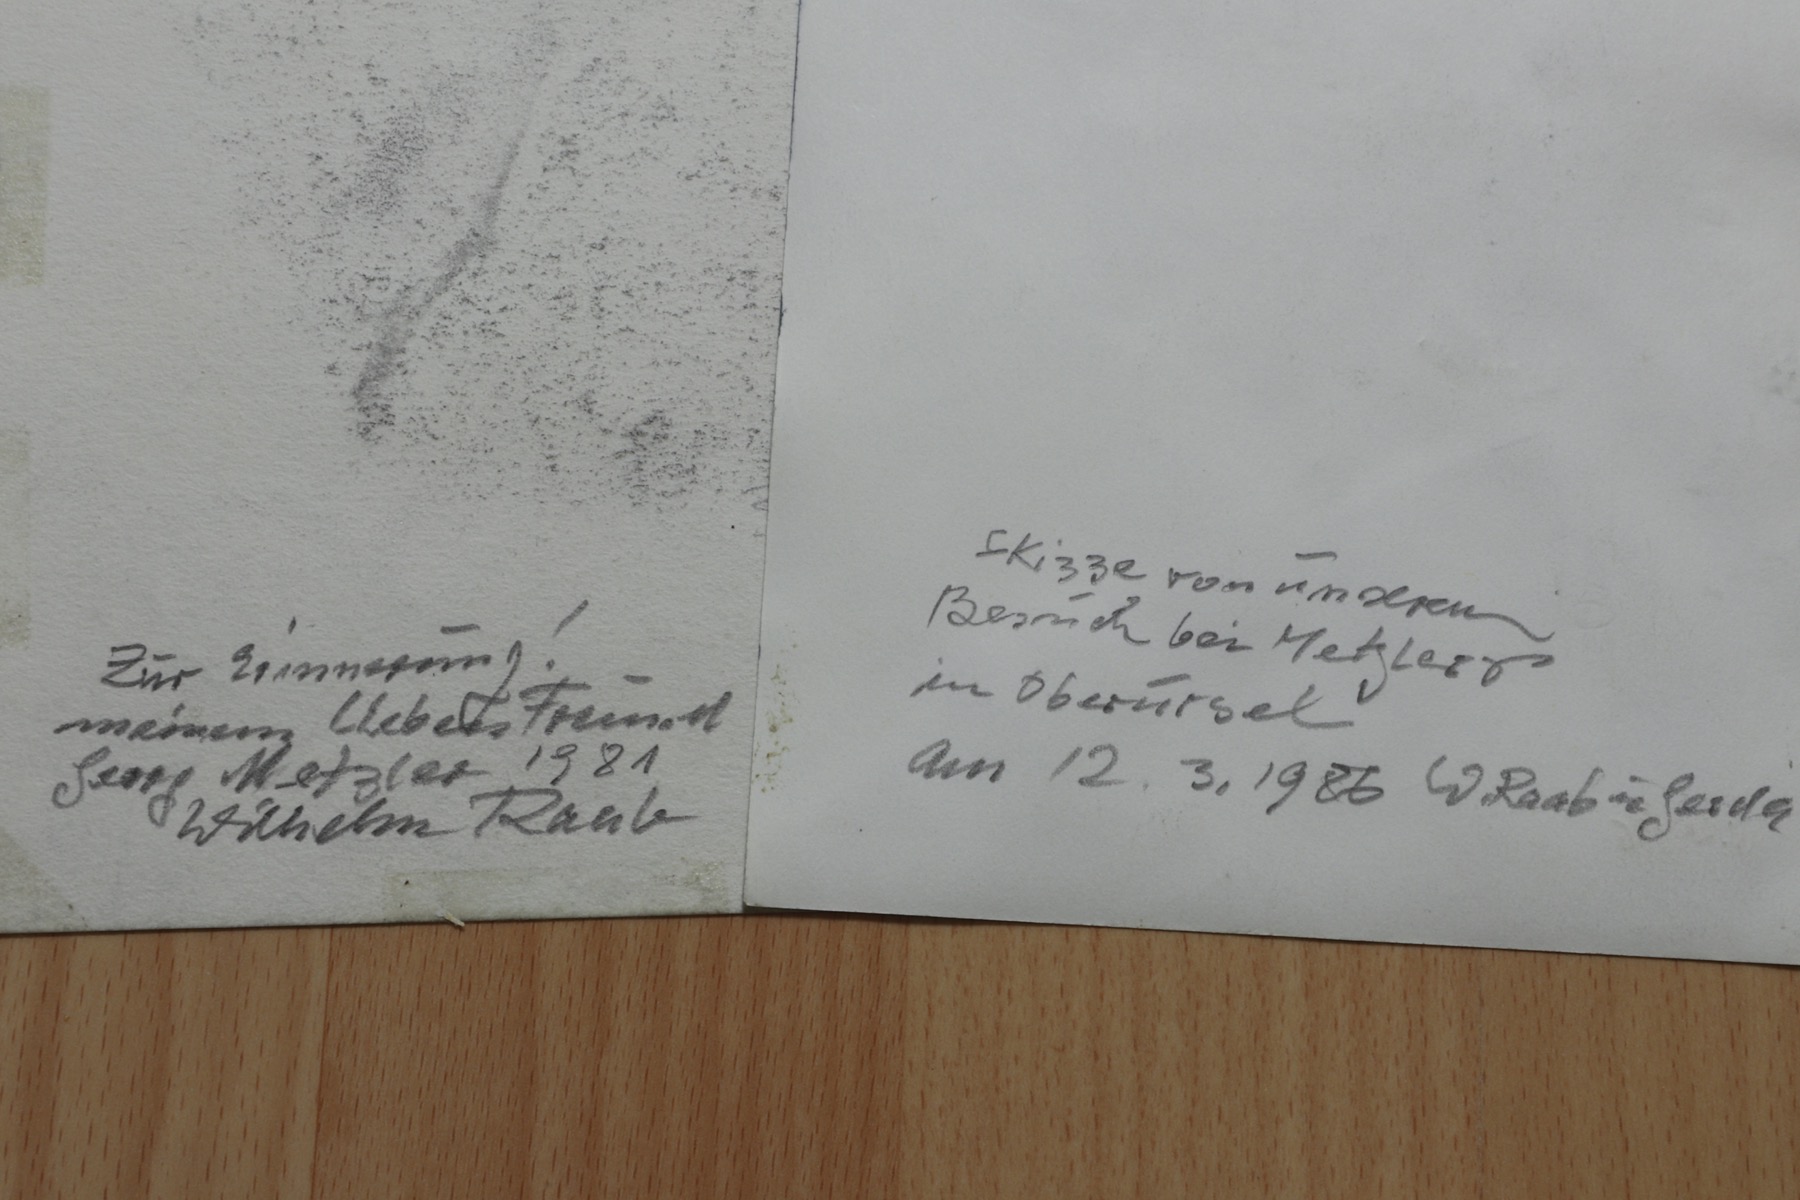 Zur Erinnerung!
meinem lieben Freund
Georg Metzler 1981
Wilhelm Raab
Skizze von unserem
Besuch bei Metzlers
in Oberursel
am 12. 3. 1986 W. Raab u Gerda